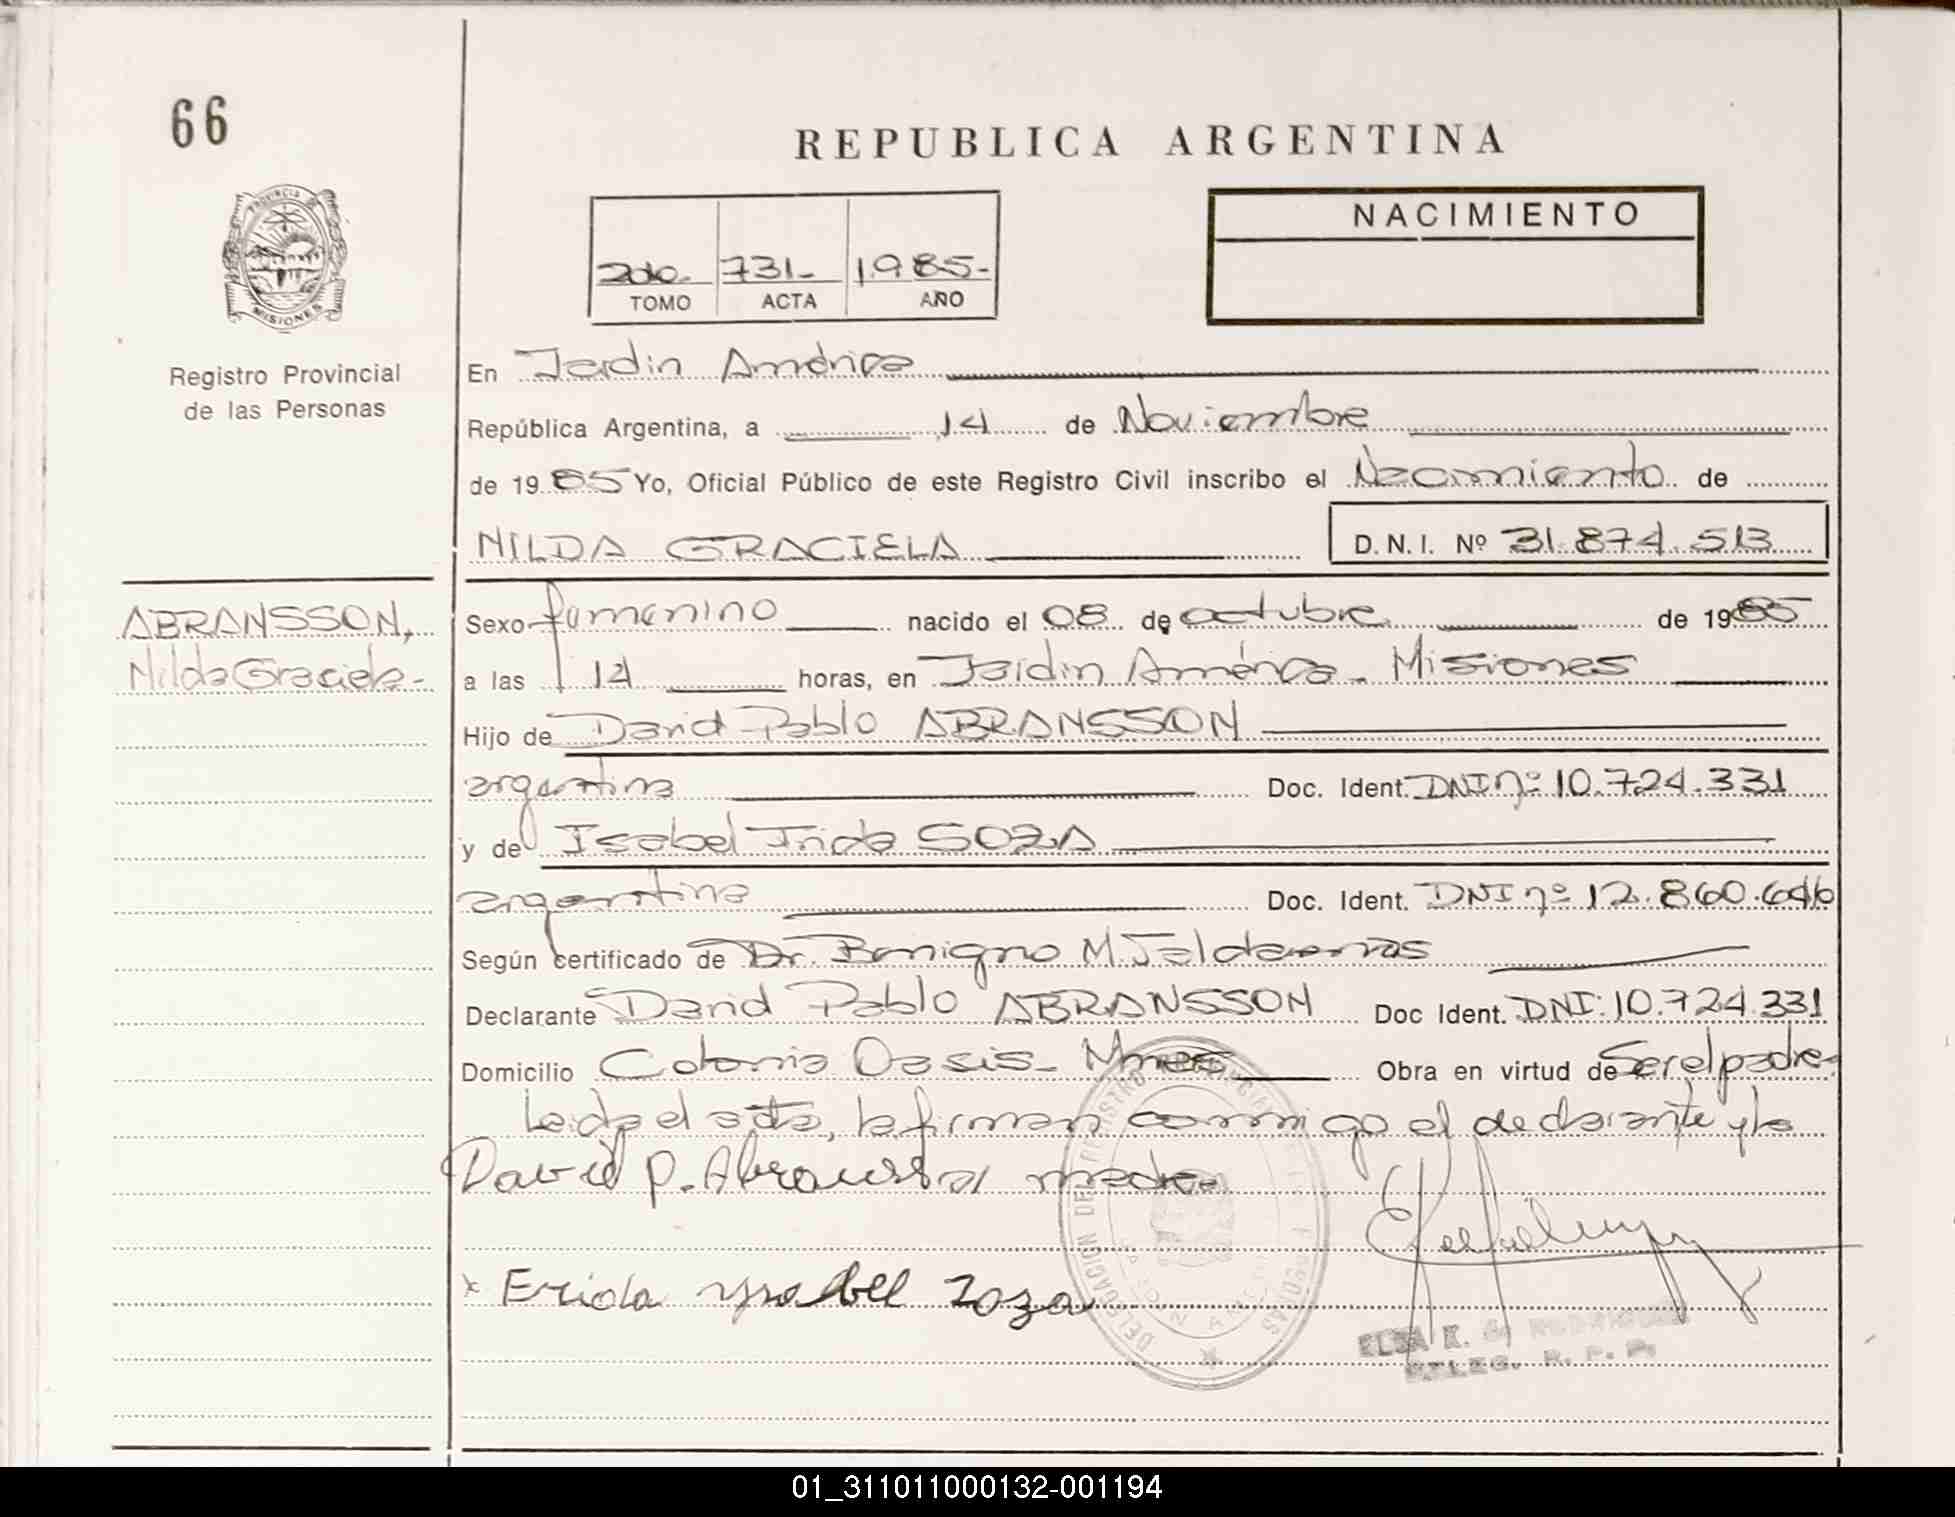 66
REPUBLICA ARGENTINA
PROVINCIA DE
MISIONES
Registro Provincial
de las Personas
2do. 731- 1.985-
TOMO ACTA AÑO
NACIMIENTO
En Jardin América
República Argentina, a 14 de Noviembre
de 1985 Yo, Oficial Público de este Registro Civil inscribo el Nacimiento de
NILDA GRACIELA D.N.I. Nº 31.874.513
ABRANSSON,
Nilda Graciela-
Sexo femenino nacido el 08 de octubre de 1985
a las 14 horas, en Jardin América. Misiones
Hijo de David Pablo ABRANSSON
argentina Doc. Ident. DNI nº 10.724.331
y de Isabel Irida SOZA
argentina Doc. Ident. DNI nº 12.860.646
Según certificado de Dr. Benigno M.
Declarante David Pablo ABRANSSON Doc Ident. DNI: 10.724.331
Domicilio Colonia Oasis- Mnes Obra en virtud de Ser el padre-
Leida el acta, la firman conmigo el declarante y la
David P. Abransson madre-
x Erida Ysabel Zoza
ELSA K. de RODRIGUEZ
DELEG. R. P. P.
01_311011000132-001194